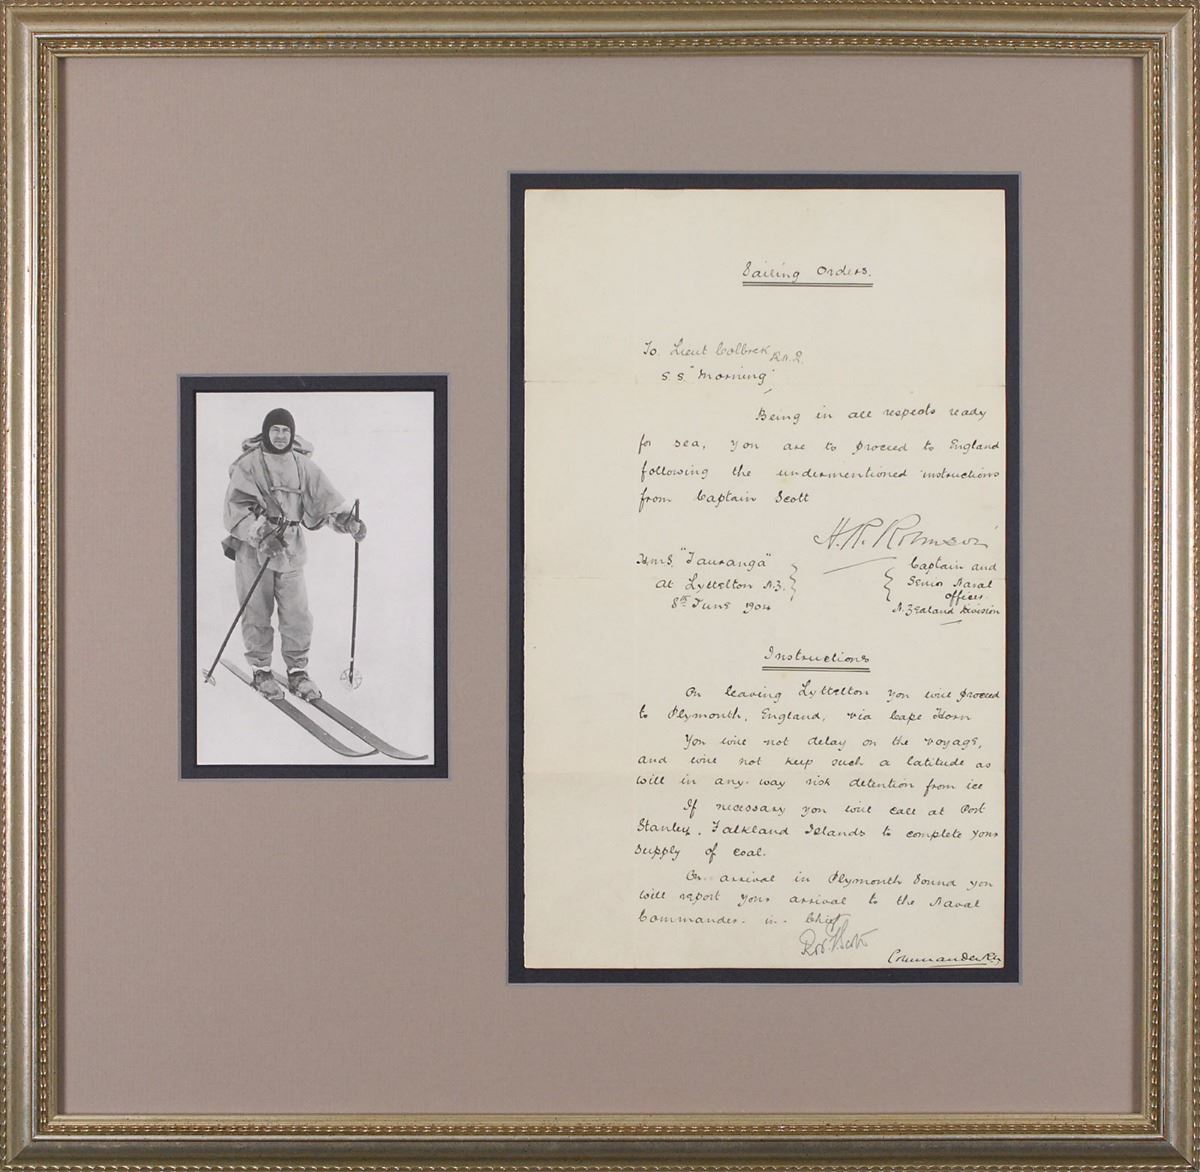 Sailing Orders.
To. Lieut Colbeck R.N.R.
S.S. "Morning"
Being in all respects ready
for sea, you are to proceed to England
following the undermentioned instructions
from Captain Scott
H. R. Robinson
H.M.S. "Tauranga"
at Lyttelton N.Z.
8th June 1904
Captain and
Senior Naval
officer.
N. Zealand Division
Instructions
On leaving Lyttelton you will proceed
to Plymouth, England, via Cape Horn
You will not delay on the voyage,
and will not keep such a latitude as
will in any way risk detention from ice
If necessary you will call at Port
Stanley, Falkland Islands to complete your
supply of coal.
On arrival in Plymouth Sound you
will report your arrival to the Naval
Commander-in-Chief
Robt F Scott
Commander R.N.